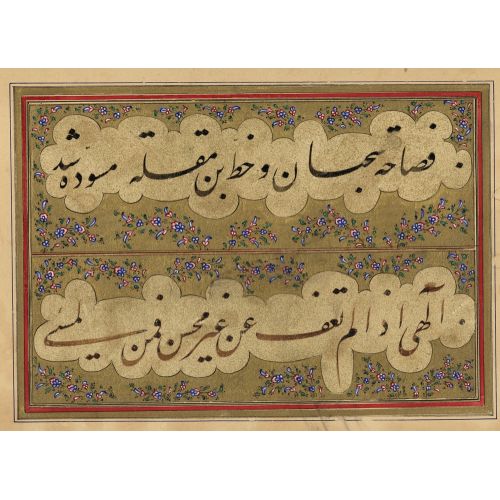 فصاحة سحبان و خط بن مقلة مسوده شد
آلهی اذا لم تعف عن غیر محسن فمن لمسیئ